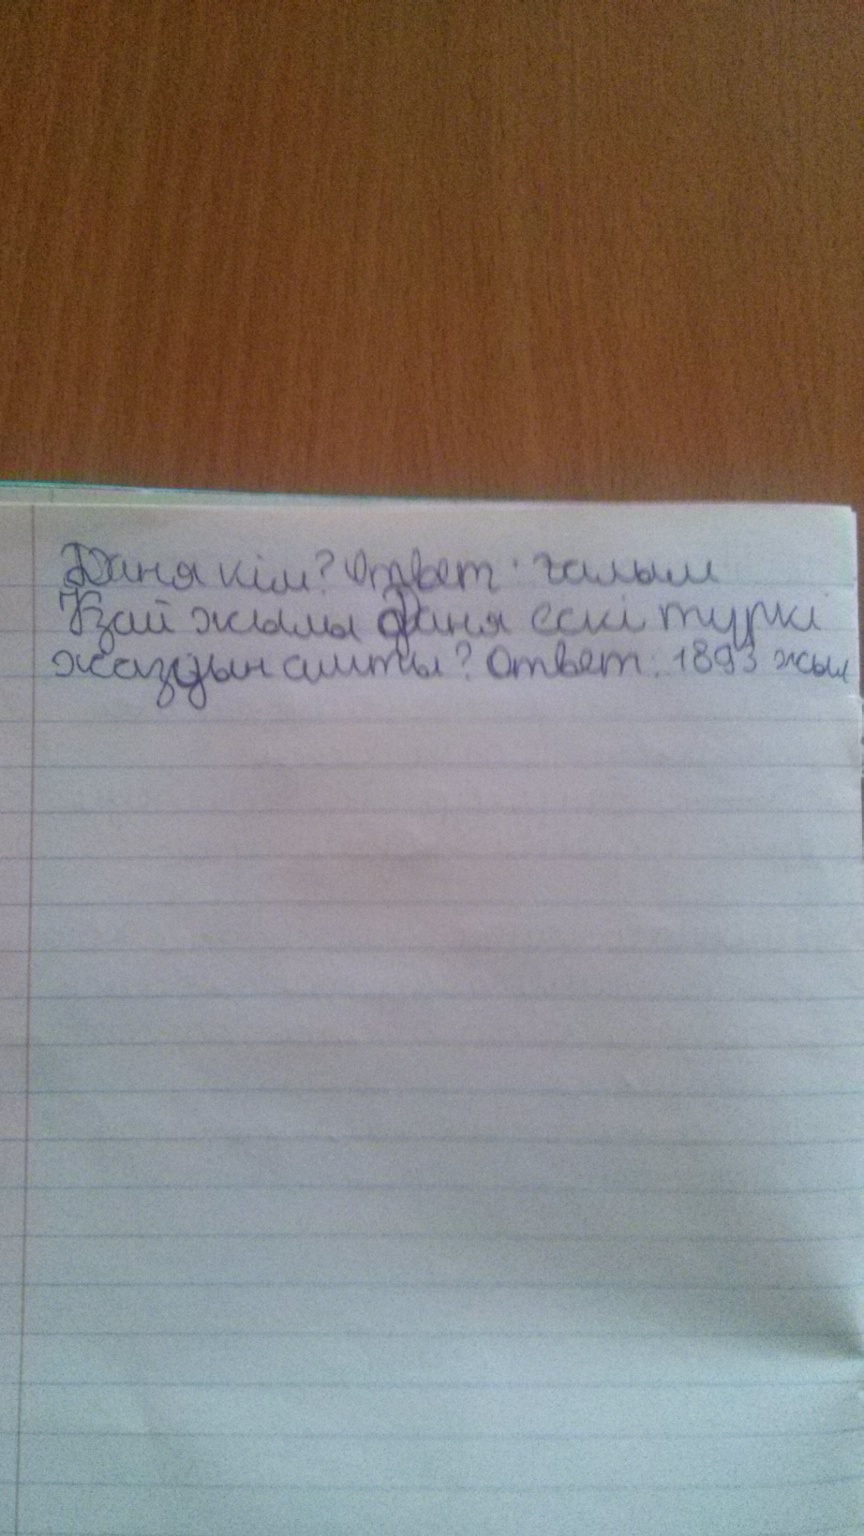 Даня кім? Ответ: ғалым
Қай жылы Даня ескі туркі
жаздын ашты? Ответ: 1893 жыл